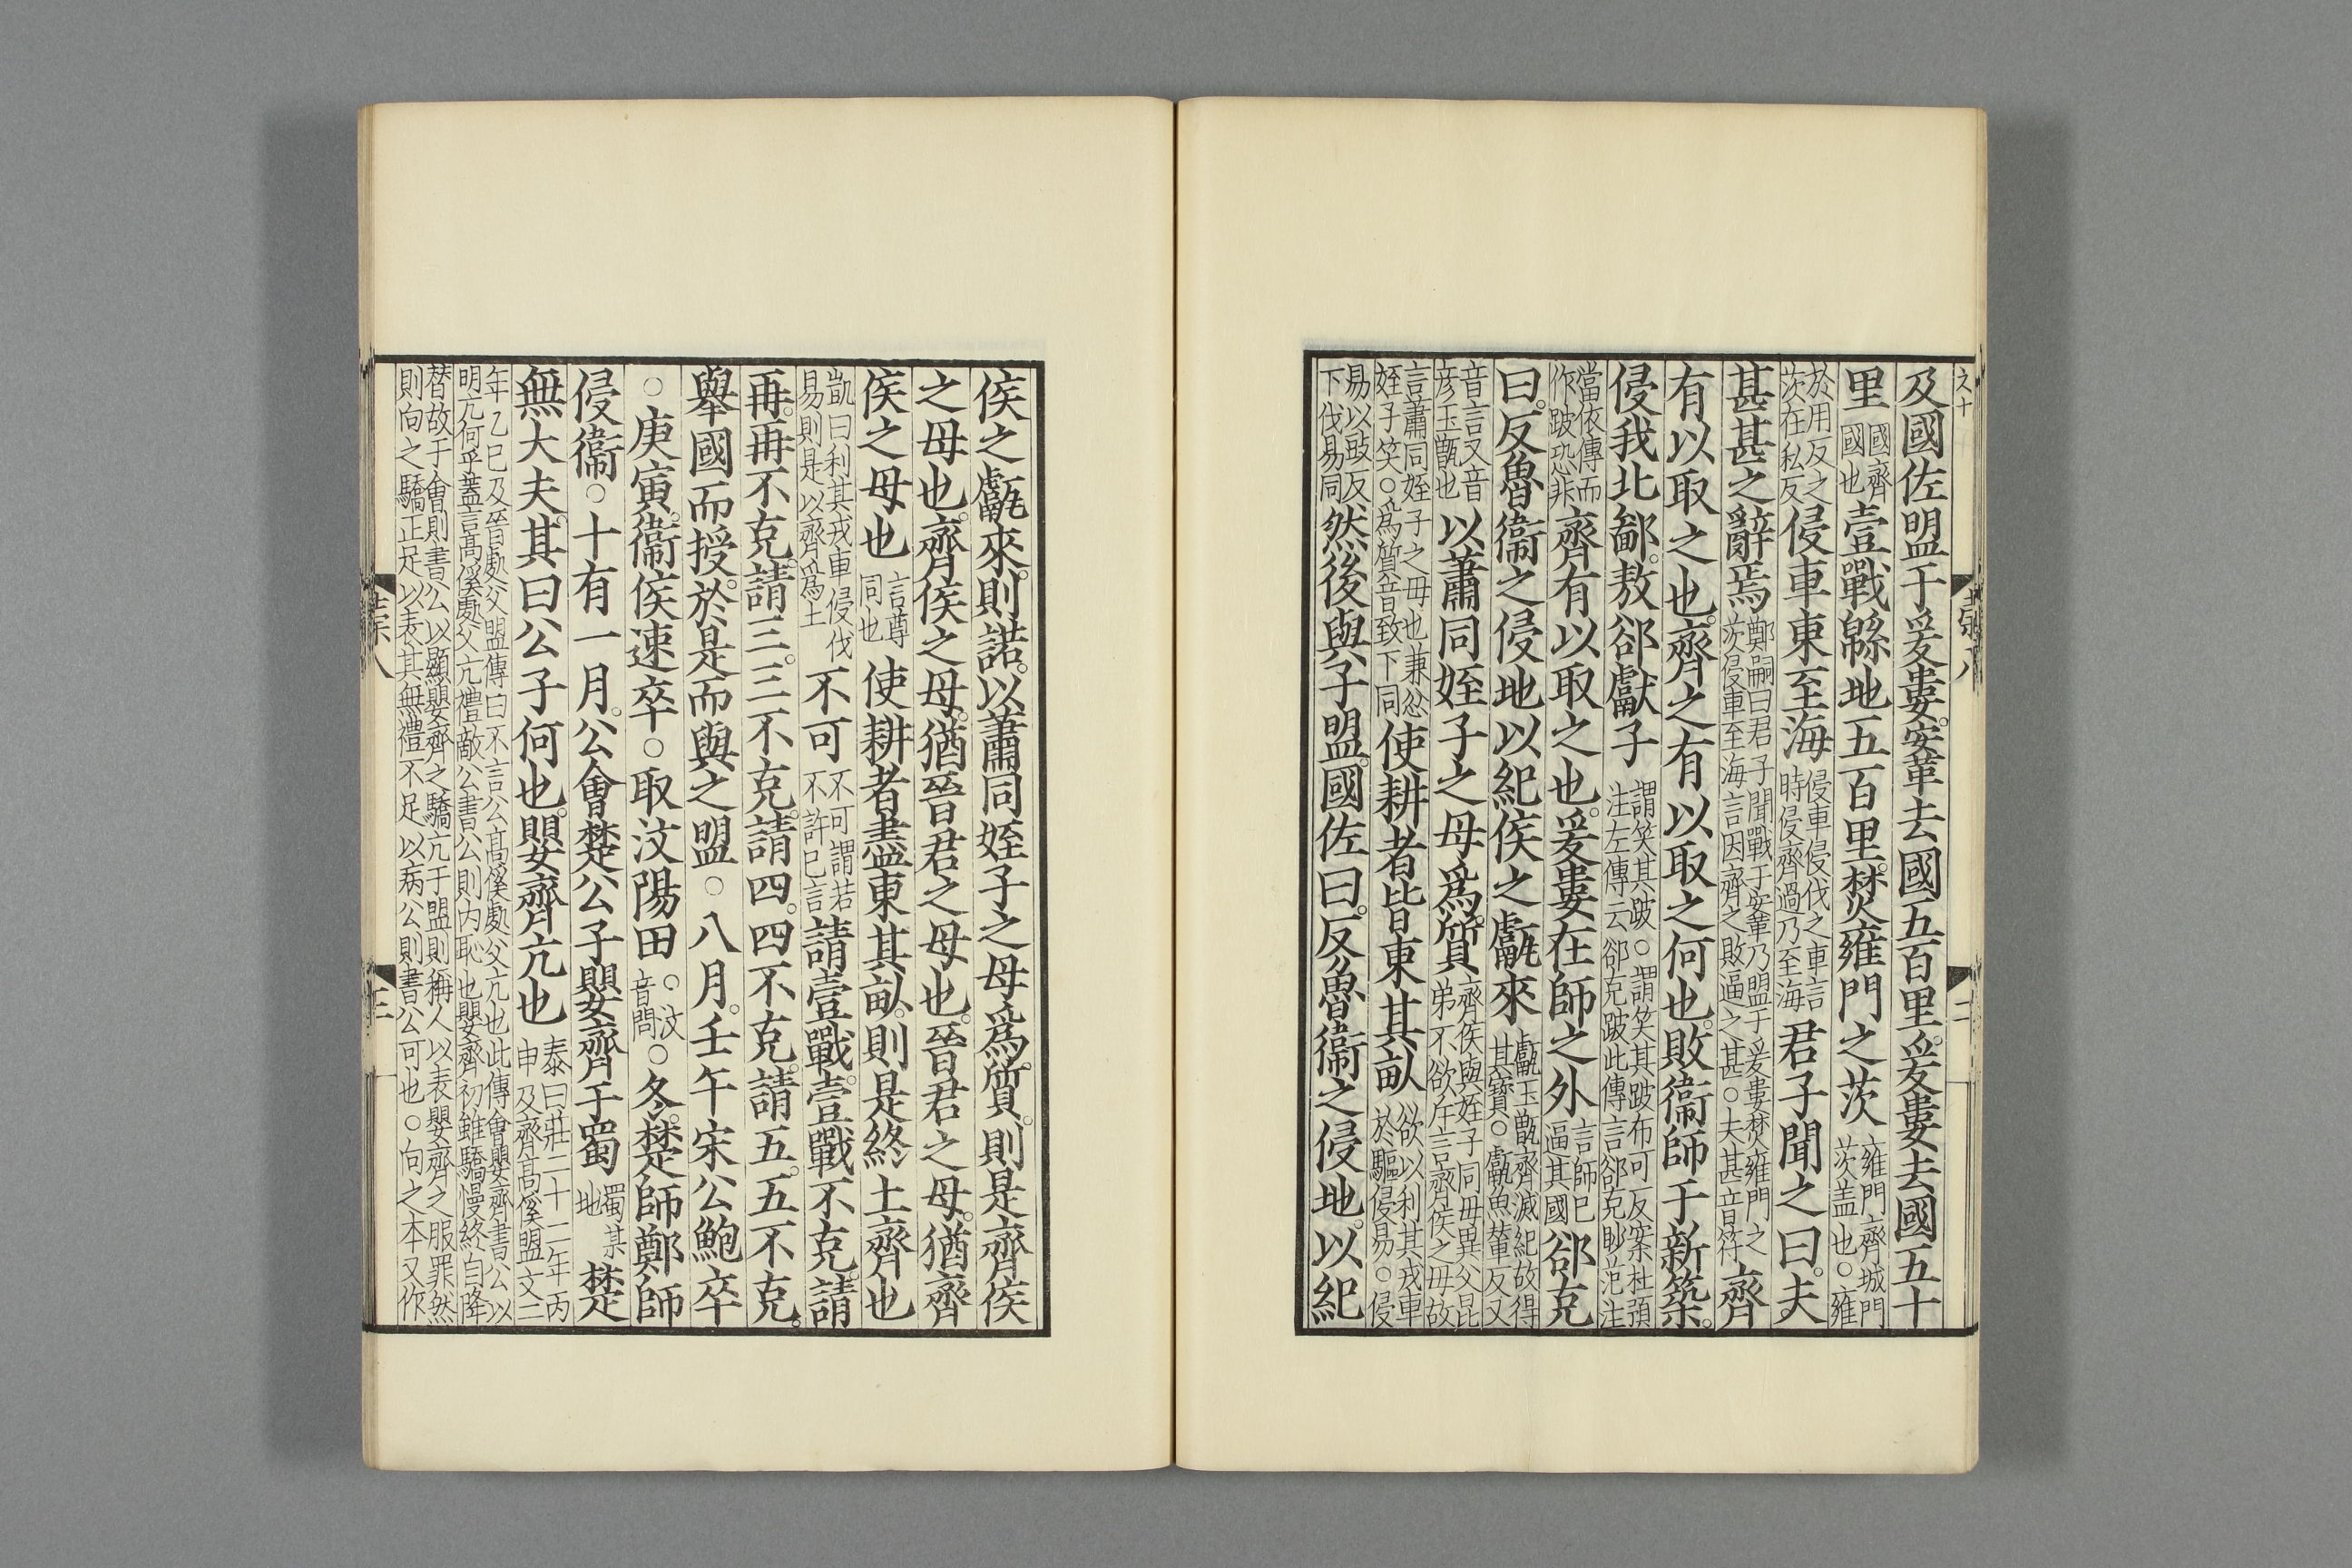 及國佐盟于爰婁窒革去國五百里爰婁去國五十
里國齊國也壹戰緜地五百里焚雍門之茨雍門齊城門茨盖也○雍
於用反之茨在私反侵車東至海侵車侵伐之車言時侵齊過乃至海君子聞之曰夫
甚甚之辭焉鄭嗣曰君子聞戰于窒革乃盟于爰婁焚雍門之茨侵車至海言因齊之敗逼之甚○夫甚音符齊
有以取之也齊之有以取之何也敗衞師于新築
侵我北鄙敖郤獻子謂笑其跛○謂笑其跛布可反案杜預注左傳云郤克跛此傳言郤克眇范注
當依傳而作跛恐非齊有以取之也爰婁在師之外言師已逼其國郤克
曰反魯衞之侵地以紀侯之甗來甗玉甑齊滅紀故得其寳○甗魚輦反又
音言又音彦玉甑也以蕭同姪子之母爲質齊侯與姪子同毋異父昆弟不欲斥言齊侯之毋故
言蕭同姪子之毋也兼忿姪子笑○爲質音致下同使耕者皆東其畝欲以利其戎車於驅侵易○侵
易以豉反下伐易同然後與子盟國佐曰反魯衞之侵地以紀
侯之甗來則諾以蕭同姪子之母爲質則是齊侯
之母也齊侯之母猶晉君之母也晉君之母猶齊
侯之母也言尊同也使耕者盡東其畝則是終土齊也
凱曰利其戎車侵伐易則是以齊爲土不可不可謂若不許已言請壹戰壹戰不克請
再再不克請三三不克請四四不克請五五不克
舉國而授於是而與之盟○八月壬午宋公鮑卒
○庚寅衞侯速卒○取汶陽田○汶音問○冬楚師鄭師
侵衞○十有一月公會楚公子嬰齊于蜀蜀某地楚
無大夫其曰公子何也嬰齊亢也泰曰莊二十二年丙申及齊高傒盟文二
年乙巳及晉處父盟傳曰不言公高傒處父亢也此傳會嬰齊書公以明亢何乎蓋言高傒處父亢禮敵公書公則内恥也嬰齊初雖驕慢終自降
替故于會則書公以顯嬰齊之驕亢于盟則稱人以表嬰齊之服罪然則向之驕正足以表其無禮不足以病公則書公可也○向之本又作